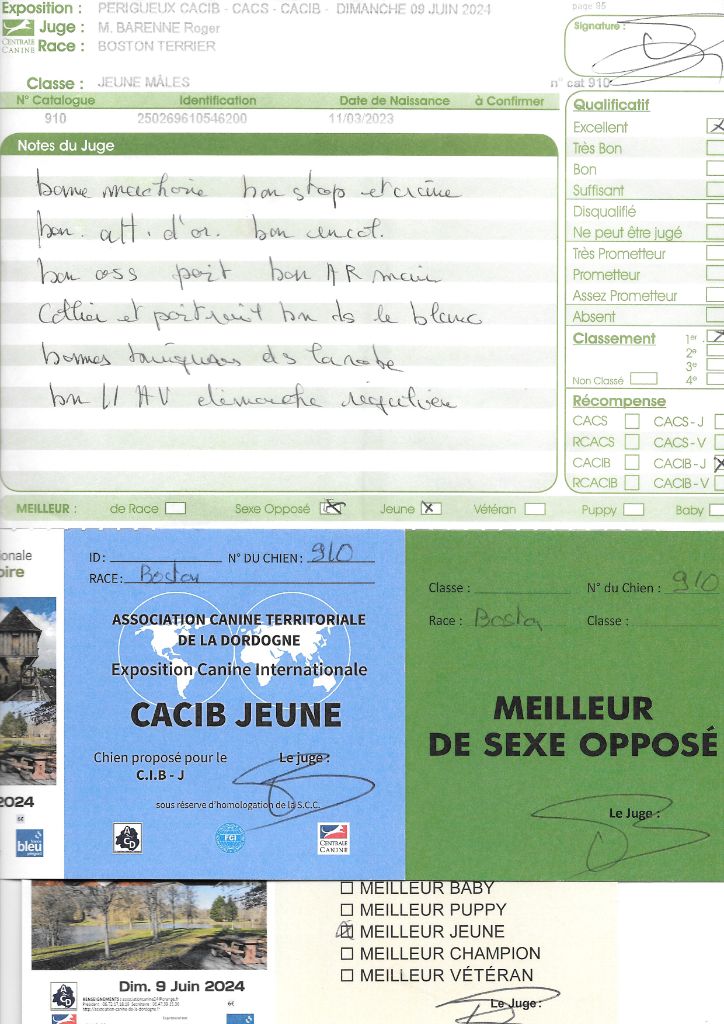 Exposition : PERIGUEUX CACIB - CACS - CACIB - DIMANCHE 09 JUIN 2024
page 95
Juge : M. BARENNE Roger
CENTRALE CANINE
Race : BOSTON TERRIER
Signature :
Classe : JEUNE MÂLES
n° cat 910
N° Catalogue Identification Date de Naissance à Confirmer
910 250269610546200 11/03/2023
Notes du Juge
bonne machoire bon stop et crâne
bon. att. d'or. bon encol.
bon oss poit bon AR main
Collier et poitrail bn ds le blanc
bonnes ds la robe
bn AV démarche régulière
Qualificatif
Excellent
Très Bon
Bon
Suffisant
Disqualifié
Ne peut être jugé
Très Prometteur
Prometteur
Assez Prometteur
Absent
Classement 1er
2e
3e
Non Classé 4e
Récompense
CACS CACS - J
RCACS CACS - V
CACIB CACIB - J
RCACIB CACIB - V
MEILLEUR : de Race Sexe Opposé Jeune Vétéran Puppy Baby
ID : N° DU CHIEN : 910
RACE : Boston
ASSOCIATION CANINE TERRITORIALE
DE LA DORDOGNE
Exposition Canine Internationale
CACIB JEUNE
Chien proposé pour le
C.I.B - J
Le juge :
sous réserve d'homologation de la S.C.C.
ACD
FCI
CENTRALE CANINE
Classe : N° du Chien : 910
Race : Boston Classe :
MEILLEUR
DE SEXE OPPOSÉ
Le Juge :
onale
oire
2024
6€
bleu
MEILLEUR BABY
MEILLEUR PUPPY
MEILLEUR JEUNE
MEILLEUR CHAMPION
MEILLEUR VÉTÉRAN
Le Juge :
Dim. 9 Juin 2024
ACD
6€